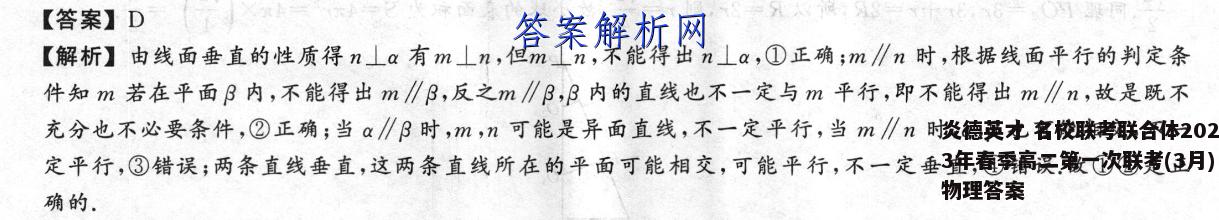 【答案】D
答案解析网
【解析】由线面垂直的性质得 n⊥α 有 m⊥n,但m⊥n,不能得出 n⊥α,①正确;m∥n 时,根据线面平行的判定条
件知 m 若在平面 β 内,不能得出 m∥β,反之m∥β,β 内的直线也不一定与 m 平行,即不能得出 m∥n,故是既不
充分也不必要条件,②正确;当 α∥β 时,m,n 可能是异面直线,不一定平行,当 m∥n 时
炎德英才 名校联考联合体202
定平行,③错误;两条直线垂直,这两条直线所在的平面可能相交,可能平行,不一定垂
3年春季高二第一次联考(3月)
物理答案
确的.